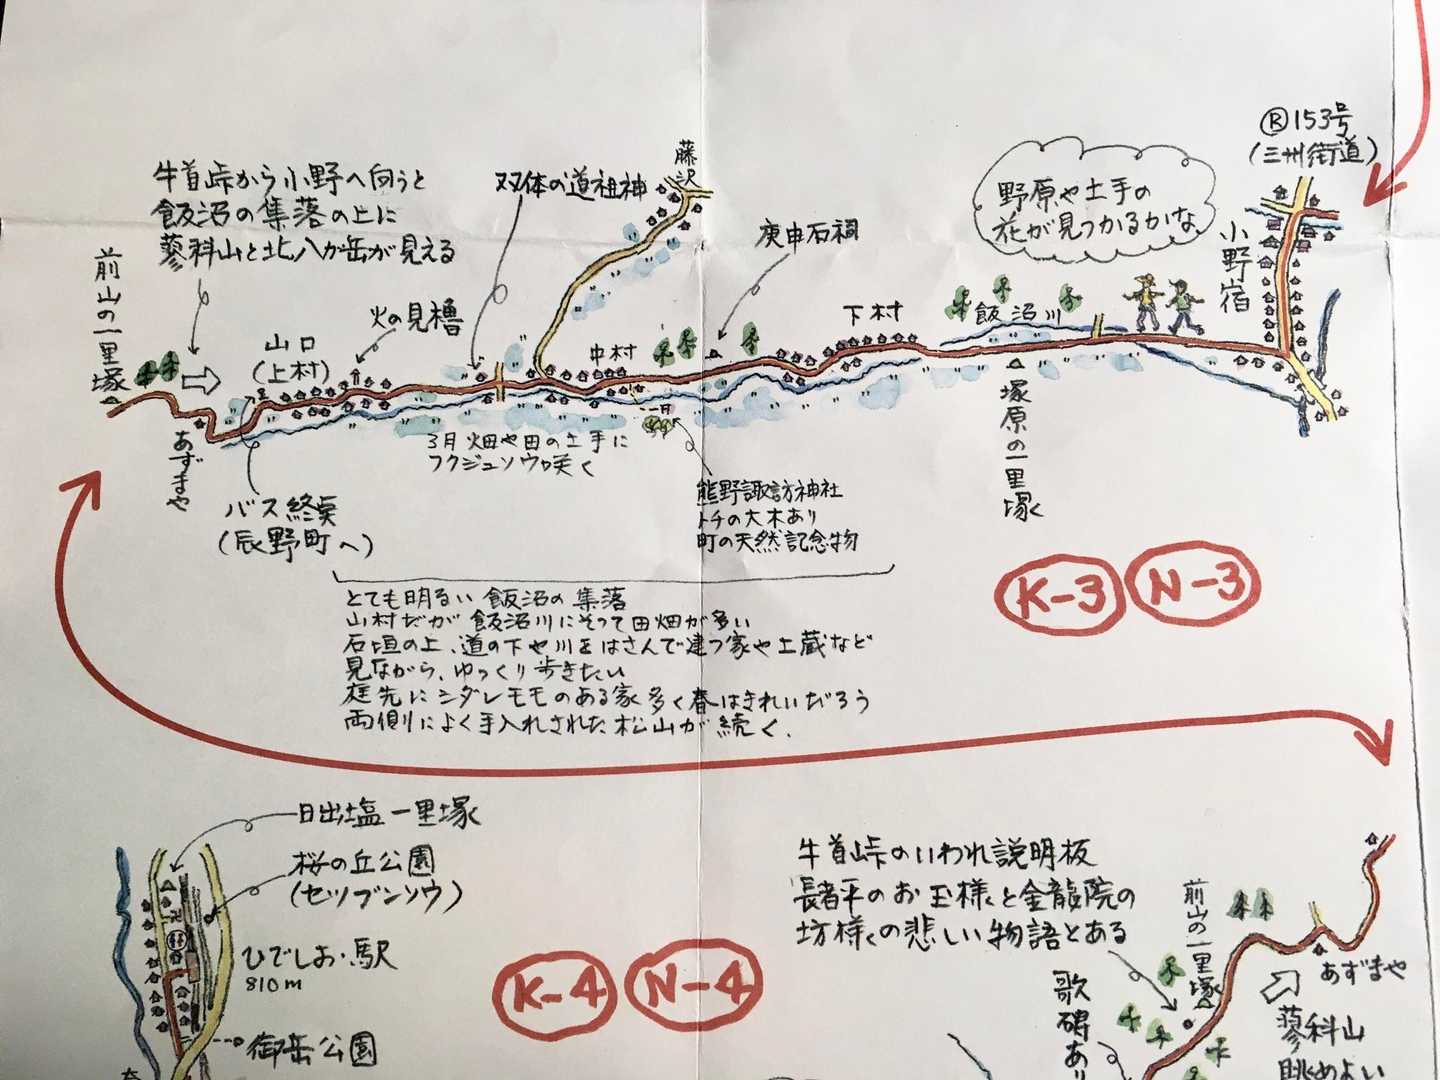 Ⓡ153号
(三州街道)
小野宿
野原や土手の
花が見つかるかな
藤沢
双体の道祖神
庚申石祠
牛首峠から小野へ向うと
飯沼の集落の上に
蓼科山と北八が岳が見える
前山の一里塚
火の見櫓
山口
(上村)
中村
下村
飯沼川
あずまや
バス終点
(辰野町へ)
3月 畑や田の土手に
フクジュソウ咲く
熊野諏訪神社
トチの大木あり
町の天然記念物
塚原の一里塚
K-3
N-3
とても明るい飯沼の集落
山村だが 飯沼川にそって田畑が多い
石垣の上、道の下や川をはさんで建つ家や土蔵など
見ながら、ゆっくり歩きたい
庭先にシダレモモのある家多く春はきれいだろう
両側によく手入れされた松山が続く.
日出塩一里塚
桜の丘公園
(セツブンソウ)
ひでしお駅
810m
御岳公園
K-4
N-4
牛首峠のいわれ説明板
長者平のお玉様と金龍院の
坊様の悲しい物語とある
前山の一里塚
歌碑あり
あずまや
蓼科山
眺めよい